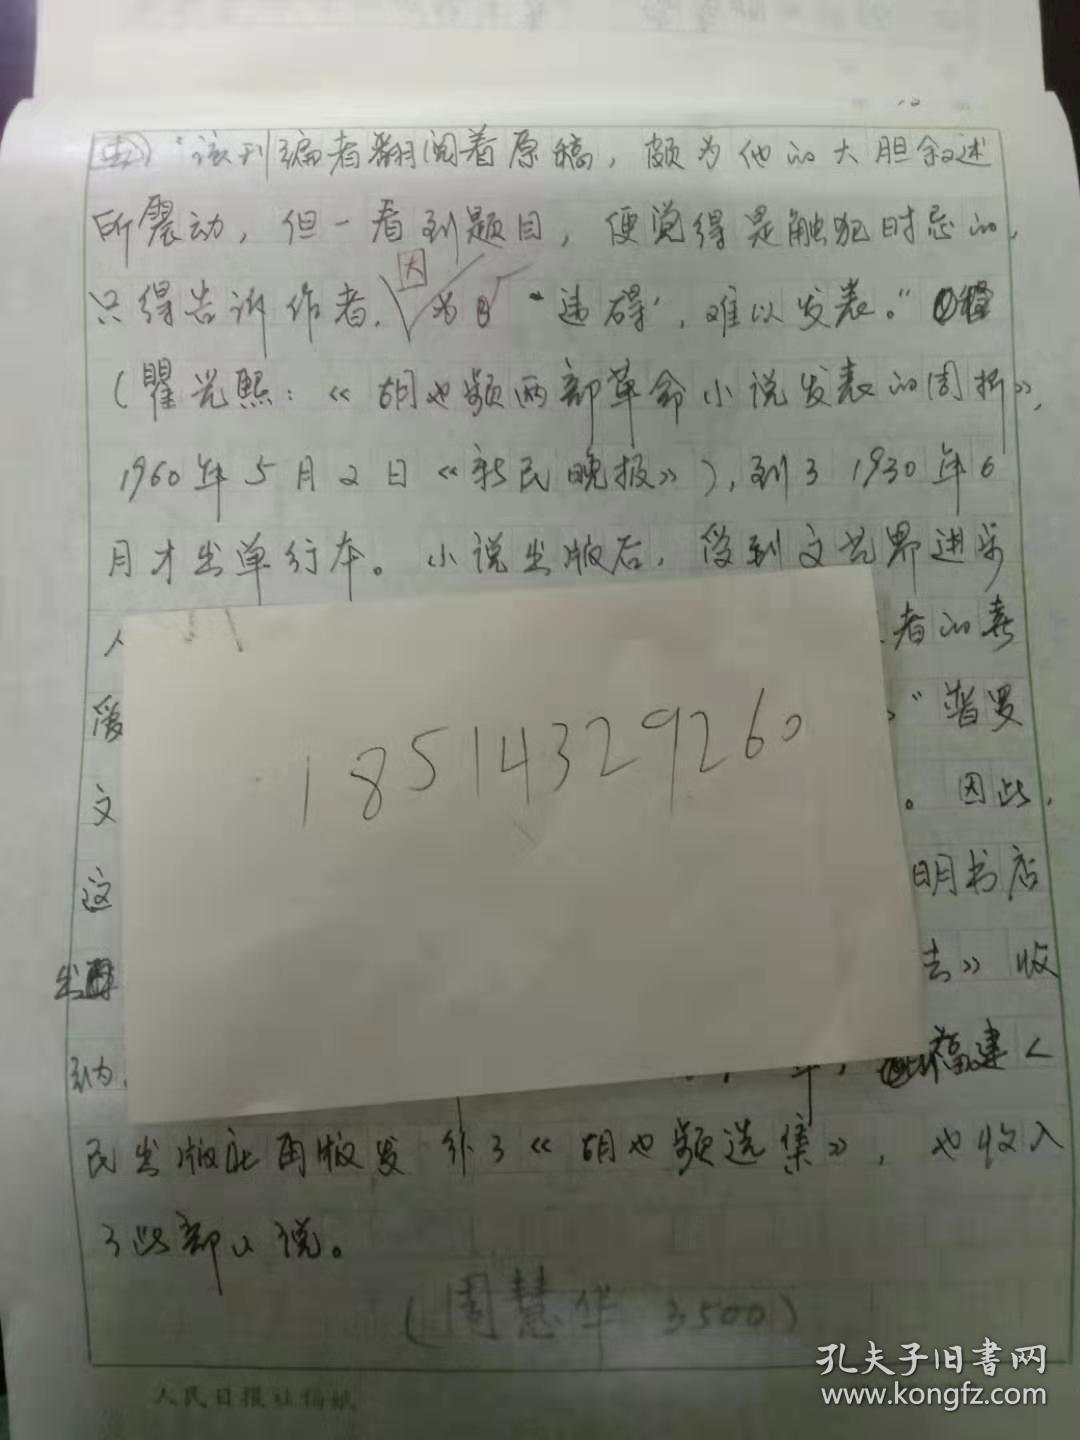 “该刊编者翻阅着原稿，颇为他的大胆叙述
所震动，但一看到题目，便觉得是触犯时忌的，
只得告诉作者，因书名“违碍”，难以发表。”
（瞿光熙：《胡也频两部革命小说发表的周折》，
1960年5月2日《新民晚报》），到了1930年6
月才出单行本。小说出版后，受到文艺界进步
人
者的喜
爱
”普罗
文
。因此，
这
明书店
出
去》收
入
年，福建人
民出版社再版发行了《胡也频选集》，也收入
了此部小说。
（周慧华 3500）
18514329260
人民日报社稿纸
孔夫子旧书网
www.kongfz.com